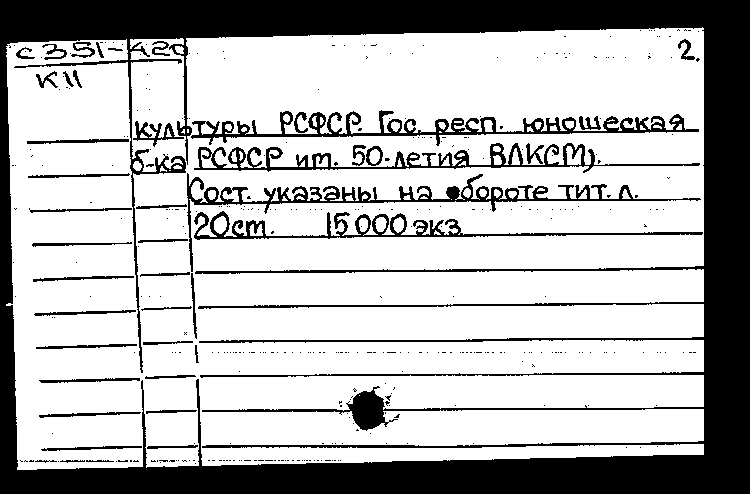 С 351-420 2.
К11
культуры РСФСР. Гос. респ. юношеская
б-ка РСФСР им. 50-летия ВЛКСМ).
Сост. указаны на обороте тит. л.
20см. 15000 экз.